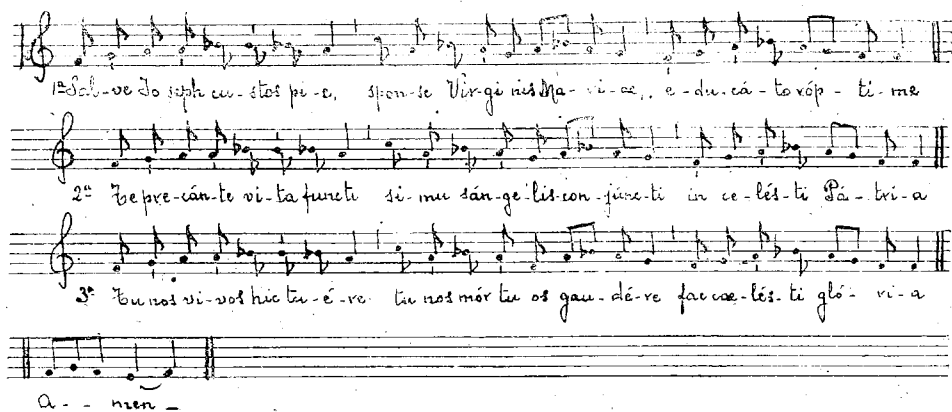 1ª Sal-ve Jo seph cu-stos pi-e, spon-se Vir-gi nis Ma-ri-ae, e-du-cá-tor óp-ti-me
2ª Te pre-cán-te vi-ta functi si-mu sán-ge-lis con-júnc-ti in ce-lés-ti Pá-tri-a
3ª Tu nos vi-vos hic tu-é-re tu nos mór tu os gau-dé-re fac cae-lés-ti gló-ri-a
a--men-